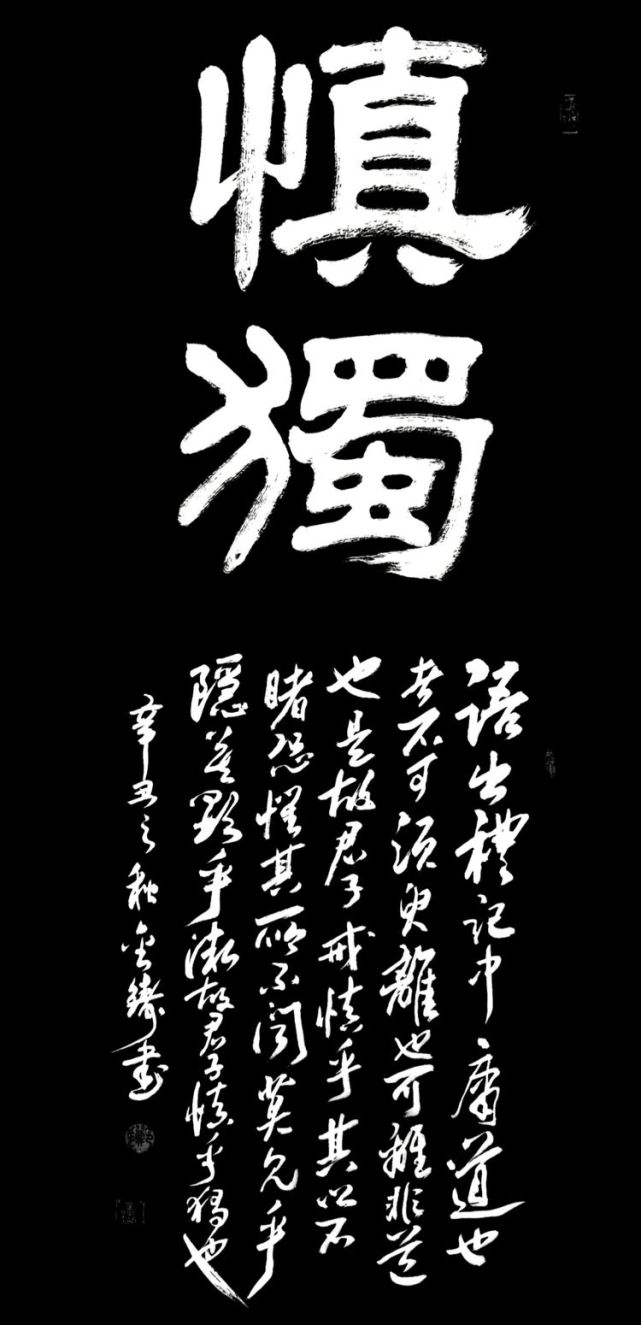 慎獨
語出禮記中庸道也
者不可須臾離也可離非道
也是故君子戒慎乎其所不
睹恐懼其所不聞莫見乎
隱莫顯乎微故君子慎乎獨也
辛丑之秋金鑄書